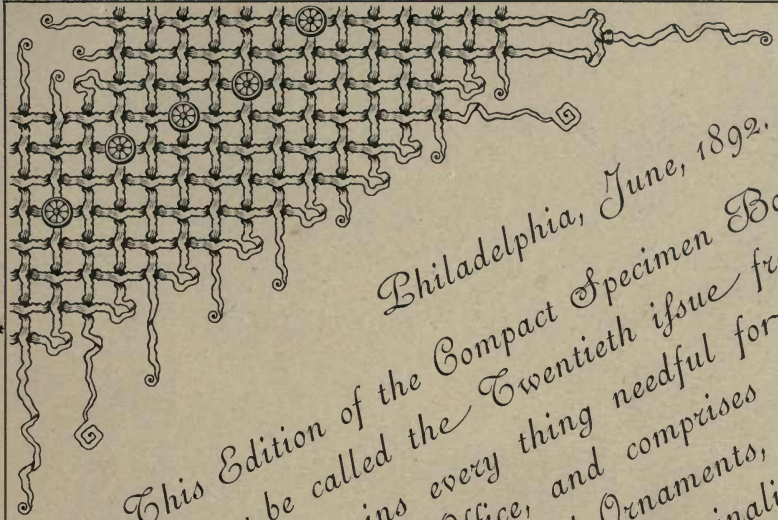 Philadelphia, June, 1892.
This Edition of the Compact Specimen Bo
be called the Twentieth issue fr
ins every thing needful for
Office, and comprises
Ornaments,
inali